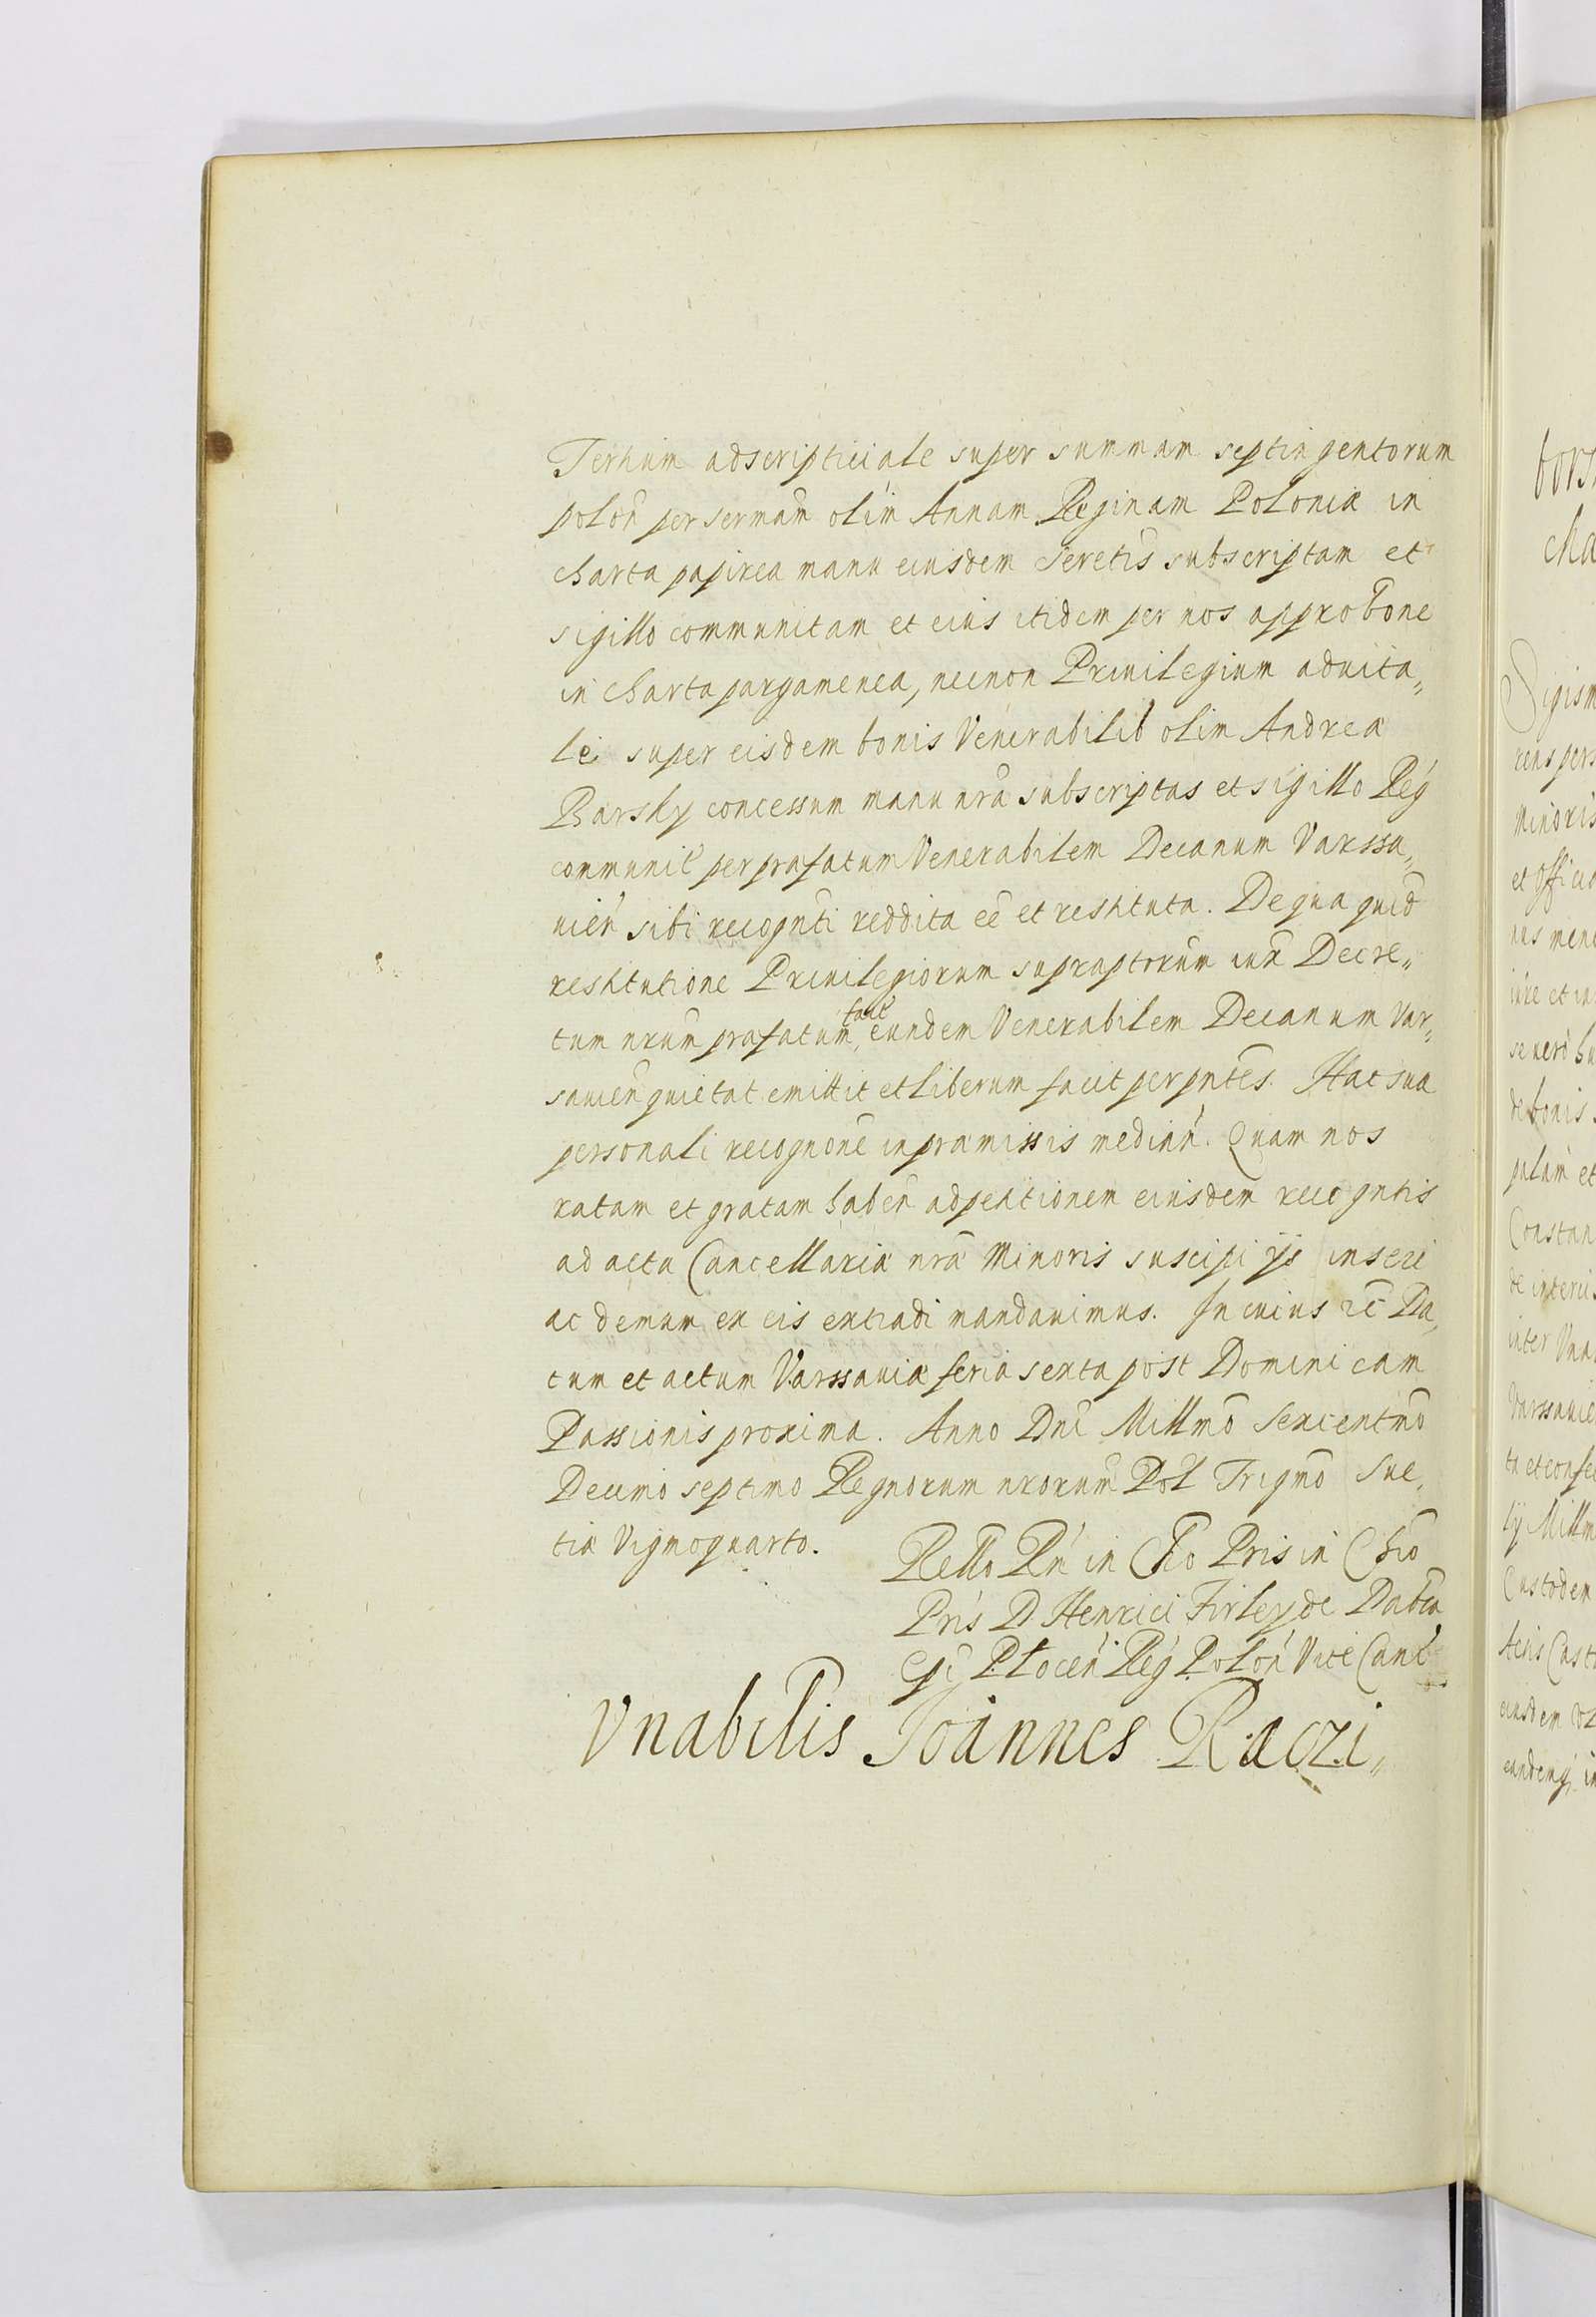 Tertium adscripticiale super summam septingentorum
polon̄ per sermam̄ olim Annam Reginam Poloniæ in
charta papirea manu eiusdem Seretis̄ subscriptam et
sigillo communitam et eius itidem per nos approbōne
in charta pargamenea, necnon Priuilegium aduita„
le super eisdem bonis Venerabilib olim Andreæ
Barsky concessum manu nrā subscriptas et sigillo Reg
communit per præfatum Venerabilem Decanum Varssa„
uien̄ sibi recognti reddita eē et restituta. De qua quid̄
restitutione Priuilegiorum supraptorum̄ iux̄ Decre„
tum nrum̄ præfatum, eundem Venerabilem Decanum Var„
sauien̄ quietat emittit et liberum facit per pntes̄. Hac sua
personali recognone in præmissis median̄. Quam nos
ratam et gratam haben̄ ad petitionem eiusdem recogntis
ad acta Cancellariæ nræ Minoris suscipi ijs inseri
ac demum ex eis extradi mandauimus. In cuius rē Da„
tum et actum Varssauiæ feria sexta post Dominicam
Passionis proxima. Anno Dnī Millmō Sexcentmō
Decimo septimo Regnorum nrorum̄ Pol̄ Trigmō Sue„
tiæ Vigmoquarto.
Rello Rn̄ in Chō Pris in Chō
Pris D. Henrici Firley de Dabro
Epi Plocen̄ Reg Polon̄ Vice Canc̄
Vnabilis Joannes Raczi„
bors
cha
Sigism
rens pers
Minoris
et Officio
nus
iure et in
se uero
de bonis
palam et
Constan
de
inter Vna
Varssauie
ta et confe
Millm
Custodem
Actis Cast
eiusdem